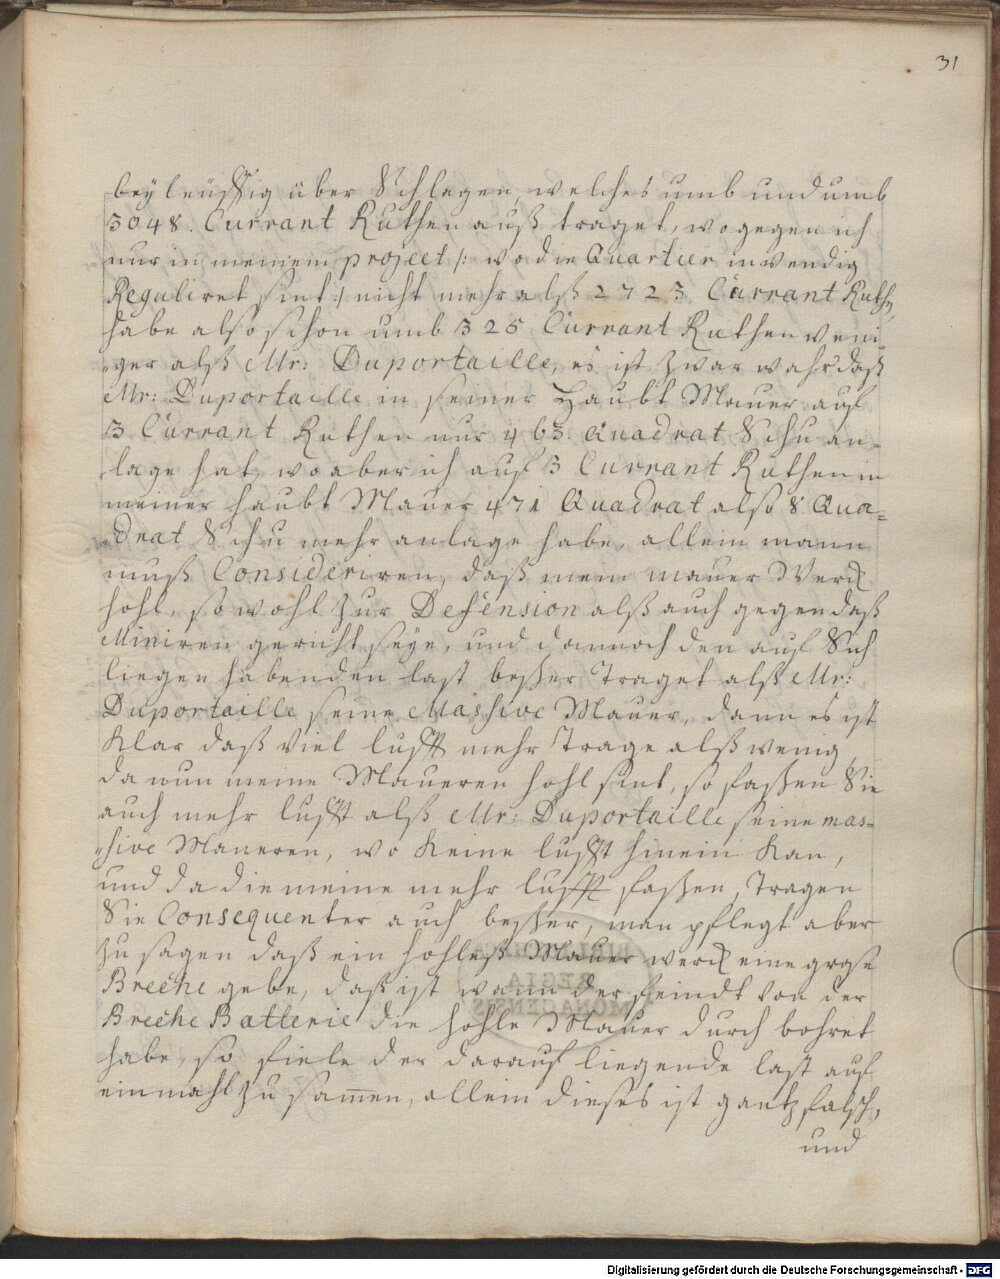 31
beÿleüffig über Schlagen, welches umb und umb
3048. Currant Ruthen auß traget, wogegen ich
nur in meinem project /: wo die Quartier inwendig
Reguliret sint :/ nicht mehr alß 2723 Currant Ruthn,
habe also schon umb 325 Currant Ruthen weni=
=ger alß Mr: Duportaille, es ist zwar wahr daß
Mr: Duportaille in seiner Haubt Mauer auf
3 Currant Ruthen nur 463. Quadrat Schu an=
=lage hat, wo aber ich auf 3 Currant Ruthen in
meiner haubt Mauer 471 Quadrat also 8 Qua=
=drat Schu mehr anlage habe, allein mann
muß Consideriren, daß mein mauer Werck
hohl, so wohl zur Defension alß auch gegen daß
Miniren gericht seye, und dannoch den auf Sich
liegen habenden last beßer Traget alß Mr:
Duportaille seine Massive Mauer, dann es ist
Klar daß viel lufft mehr Trage alß wenig,
da nun meine Maueren hohl sint, so faßen Sie
auch mehr lufft alß Mr: Duportaille seine mas=
=sive Maueren, wo Keine lufft hinein Kan,
und da die meine mehr lufft faßen, Tragen
Sie Consequenter auch beßer, man pflegt aber
zu sagen daß ein hohleß Mauer werck eine grose
Breche gebe, daß ist wann der feindt von der
Breche Batterie die hohle Mauer durch bohret
habe, so fiele der darauf liegende last auf
einmahl zu sam̅en, allein dieses ist gantz falsch,
und
BIBLIOTHECA
REGIA
MONACENSIS
Digitalisierung gefördert durch die Deutsche Forschungsgemeinschaft - DFG